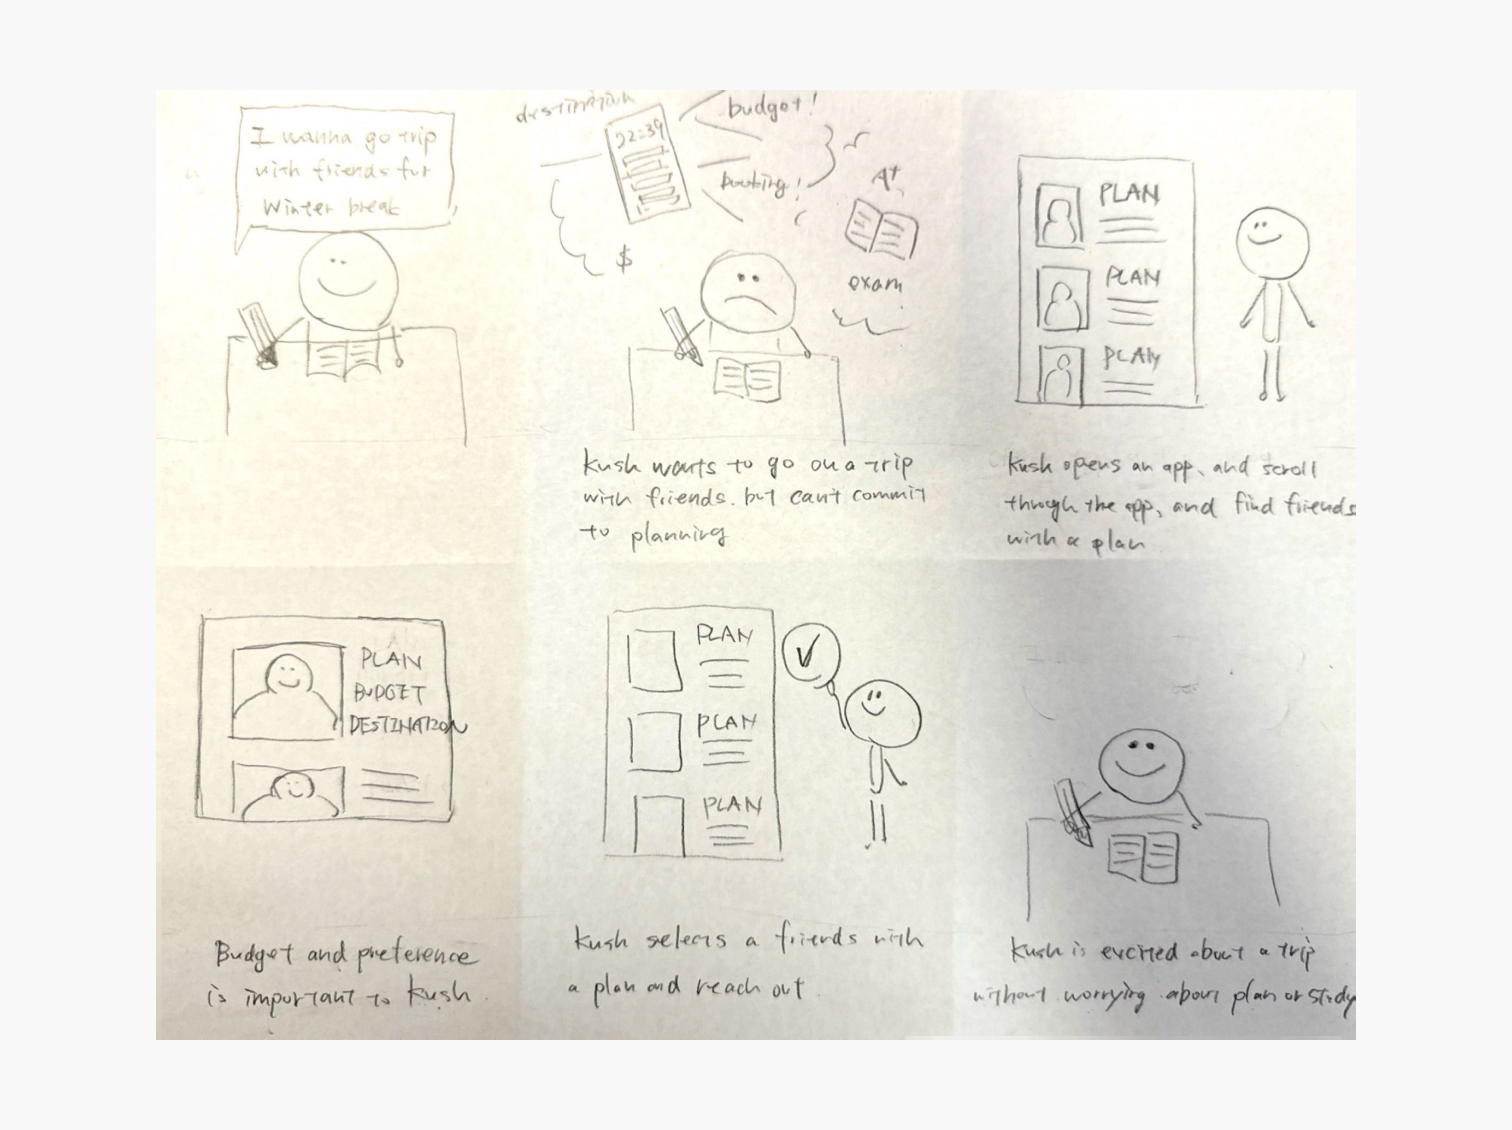 I wanna go trip
with friends for
Winter break
destination
22:39
budget!
booking!
$
A+
exam
Kush wants to go on a trip
with friends. but can't commit
to planning
PLAN
PLAN
PLAN
Kush opens an app, and scroll
through the app, and find friends
with a plan
PLAN
BUDGET
DESTINATION
Budget and preference
is important to Kush.
PLAN
PLAN
PLAN
Kush selects a friends with
a plan and reach out.
Kush is excited about a trip
without worrying about plan or study